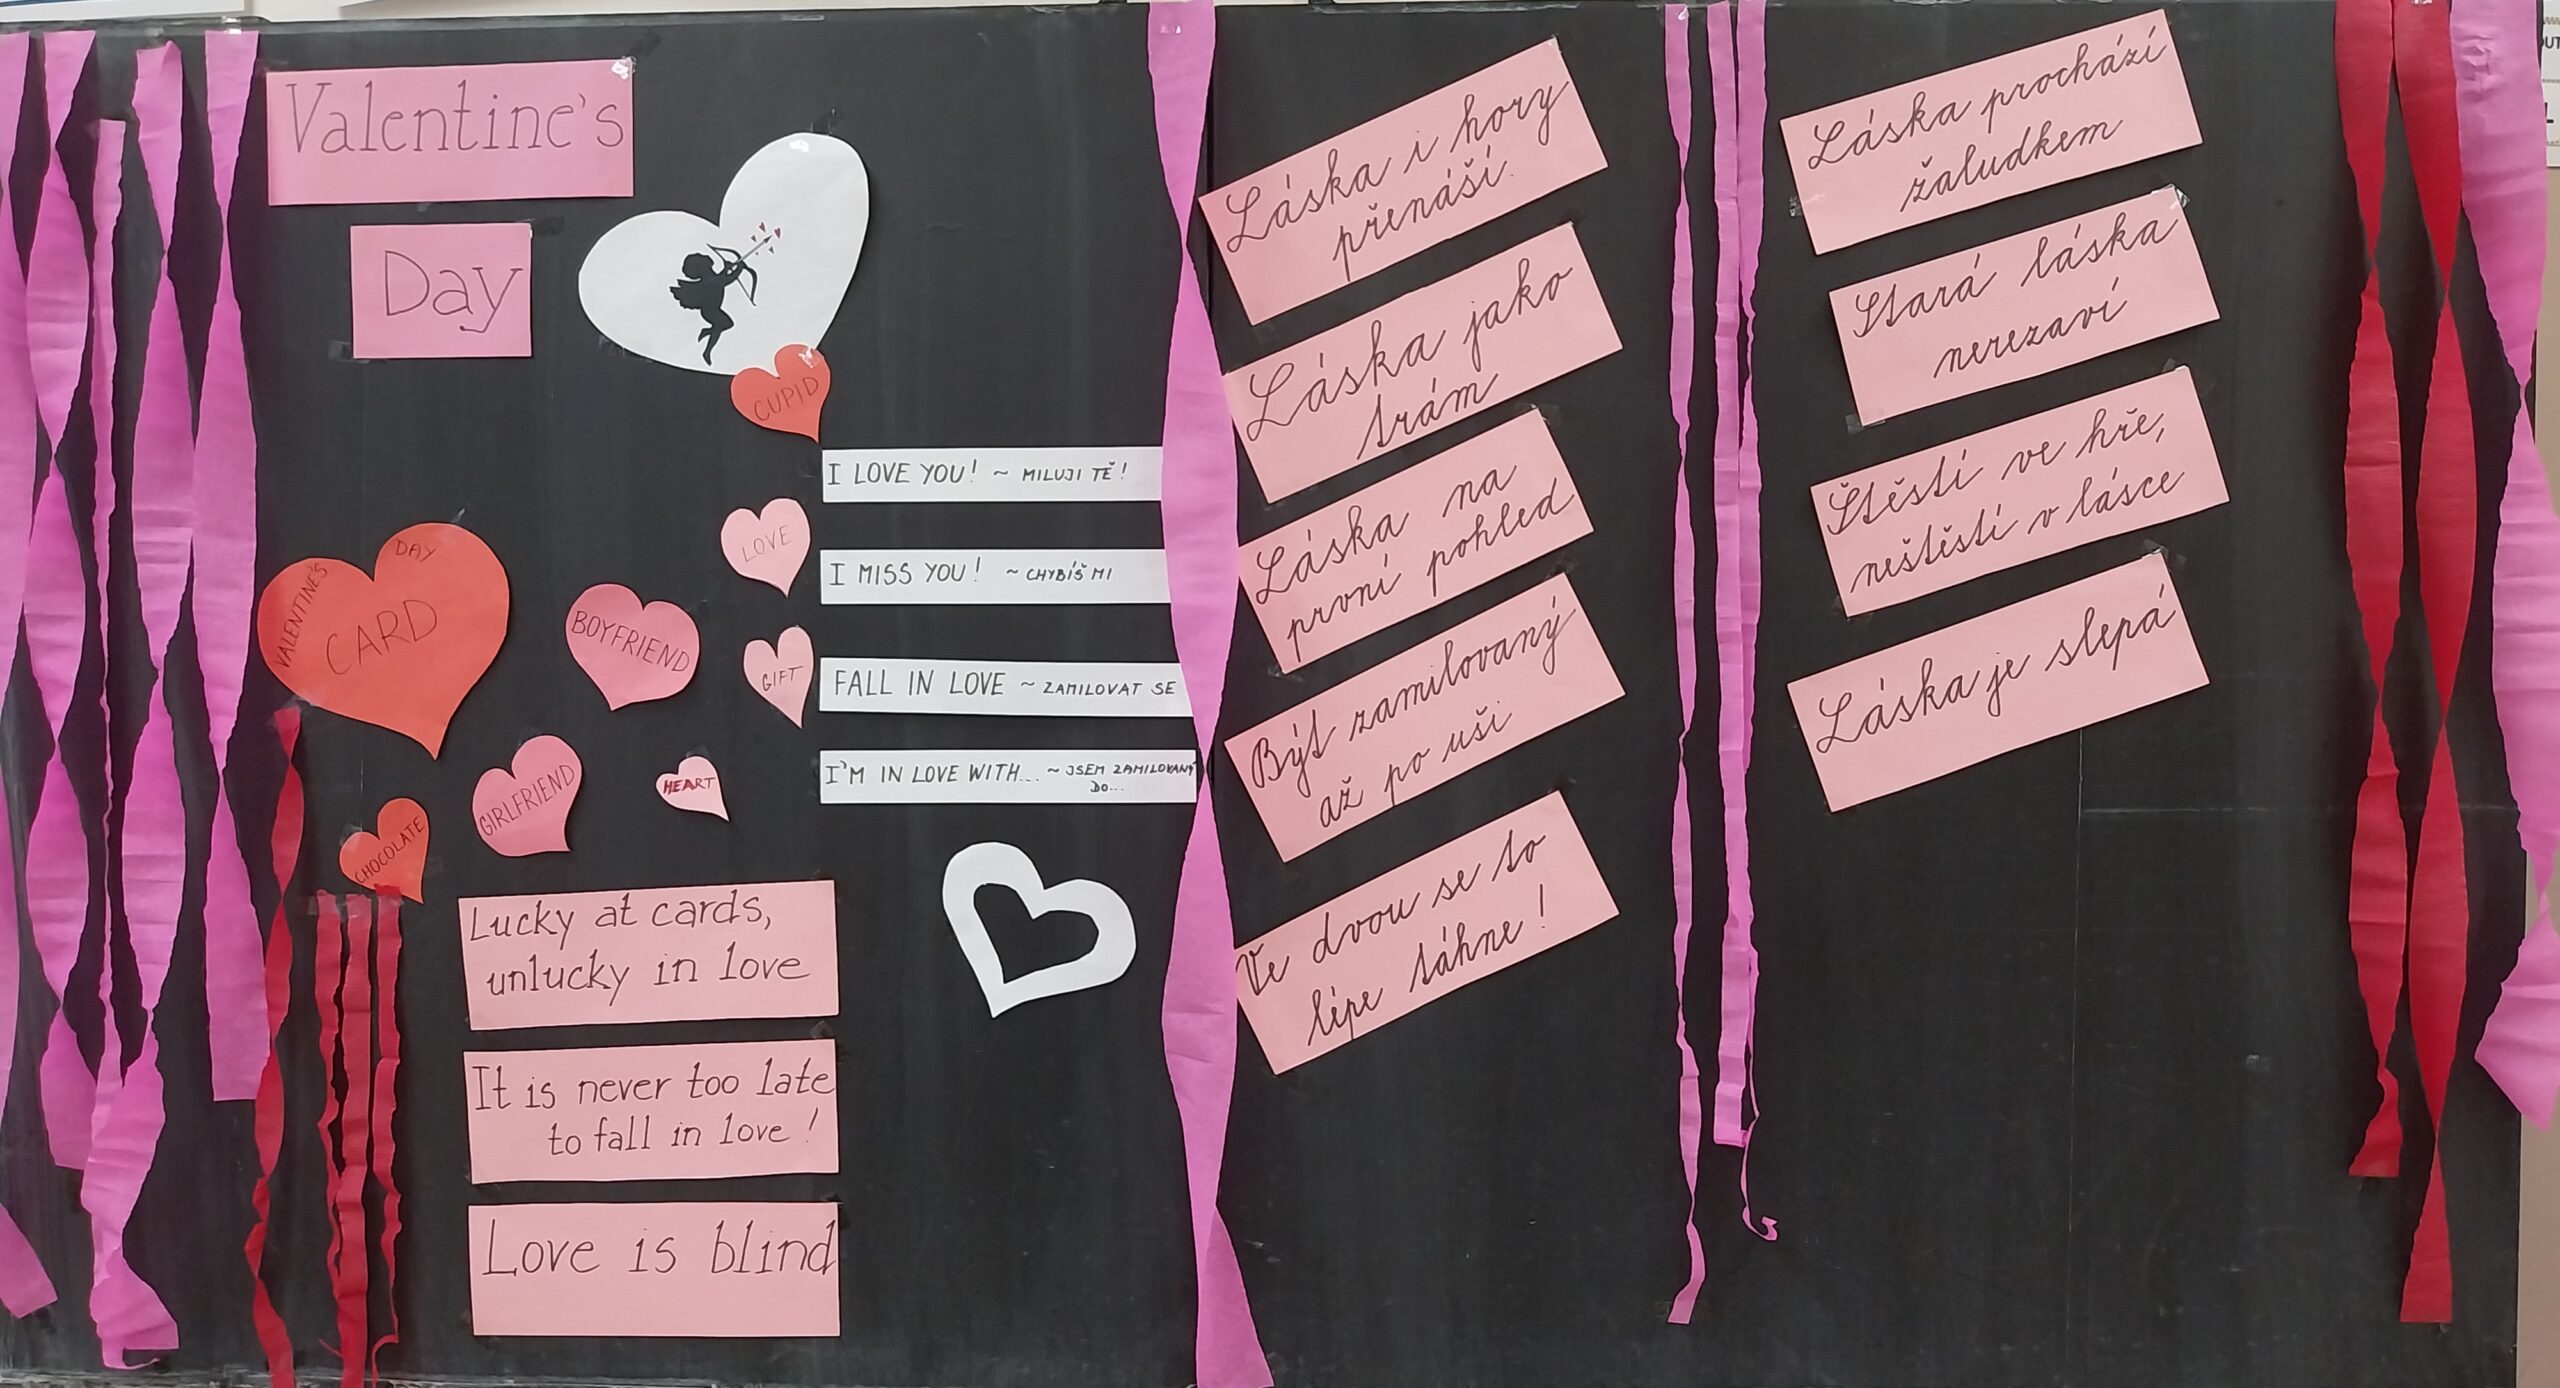 Valentine's
Day
CUPID
I LOVE YOU! ~ MILUJI TĚ!
LOVE
I MISS YOU! ~ CHYBÍŠ MI
VALENTINE'S DAY
CARD
BOYFRIEND
GIFT
FALL IN LOVE ~ ZAMILOVAT SE
GIRLFRIEND
HEART
I'M IN LOVE WITH... ~ JSEM ZAMILOVANÝ
DO...
CHOCOLATE
Lucky at cards,
unlucky in love
It is never too late
to fall in love!
Love is blind
Láska i hory
přenáší.
Láska jako
trám
Láska na
první pohled
Být zamilovaný
až po uši
Ve dvou se to
lépe táhne!
Láska prochází
žaludkem
Stará láska
nerezaví
Štěstí ve hře,
neštěstí v lásce
Láska je slepá